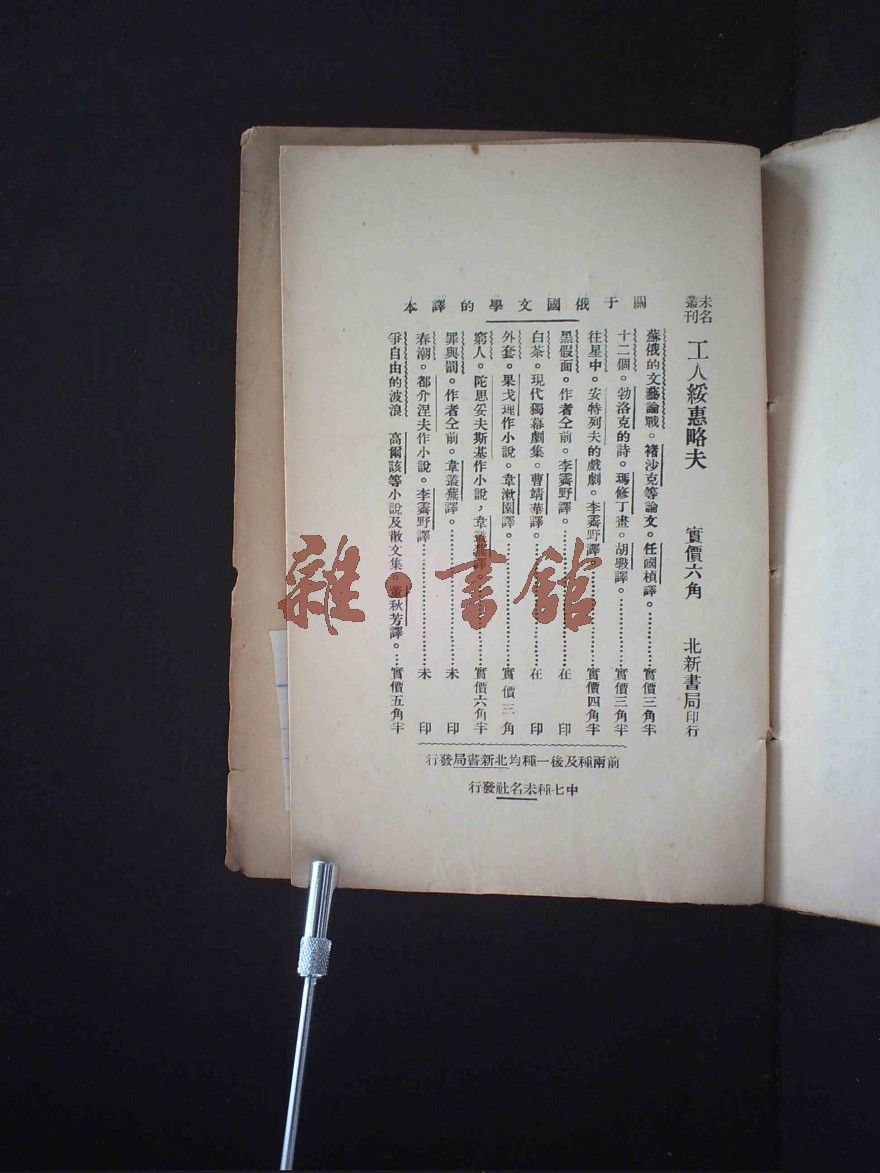 未名叢刊 工人綏惠略夫 實價六角 北新書局印行
關于俄國文學的譯本
蘇俄的文藝論戰。褚沙克等論文。任國楨譯。…………實價三角半
十二個。勃洛克的詩。瑪修丁畫。胡斅譯。…………實價三角半
往星中。安特列夫的戲劇。李霽野譯…………實價四角半
黑假面。作者仝前。李霽野譯。…………在印
白茶。現代獨幕劇集。曹靖華譯。…………在印
外套。果戈理作小說。韋漱園譯。…………實價三角
窮人。陀思妥夫斯基作小說，韋叢蕪譯。…………實價六角半
罪與罰。作者仝前。韋叢蕪譯。…………未印
春潮。都介涅夫作小說。李霽野譯…………未印
爭自由的波浪 高爾該等小說及散文集。董秋芳譯。…實價五角半
前兩種及後一種均北新書局發行
中七種未名社發行
雜·書館